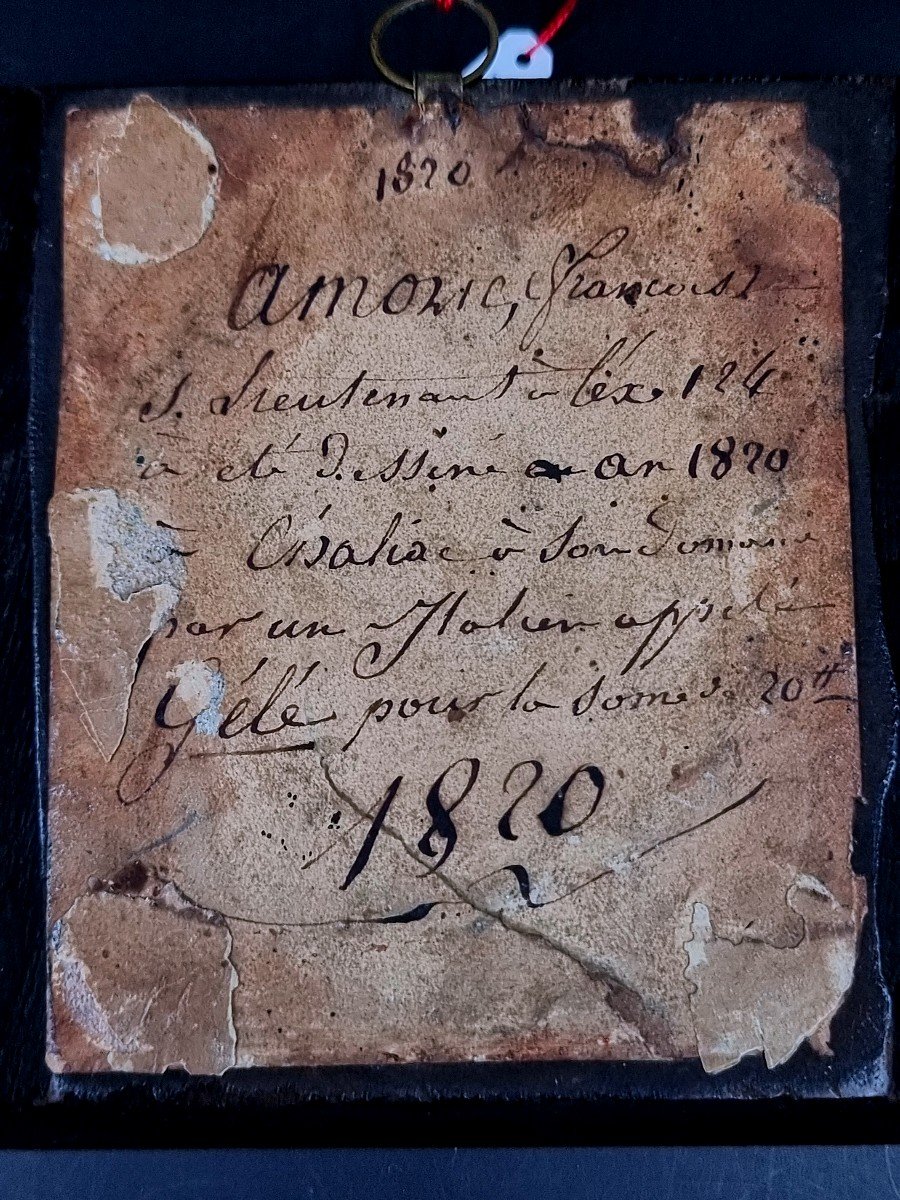 1820
Amouric, François
s. Lieutenant à l'éx 124
à eté Dessiné an 1820
à à son Domaine
par un Italien appelé
Gélé pour la some de 20 ₶
1820